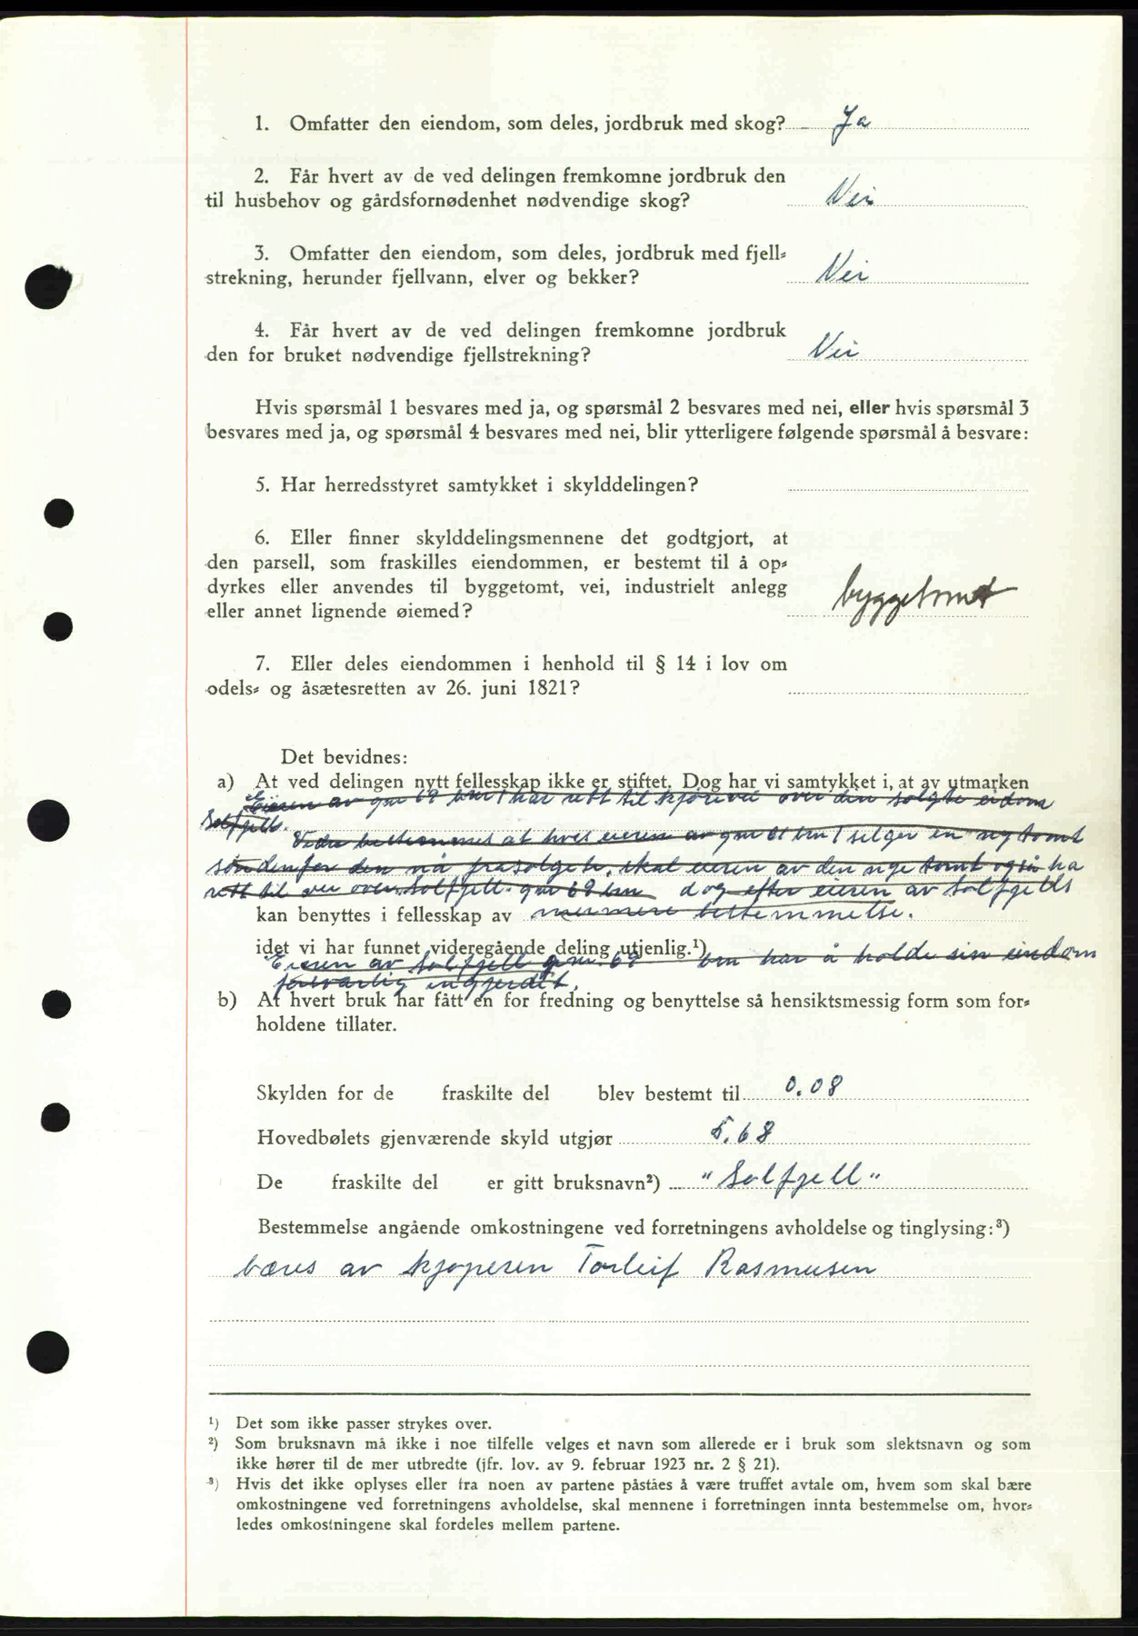 1. Omfatter den eiendom, som deles, jordbruk med skog? Ja
2. Får hvert av de ved delingen fremkomne jordbruk den
til husbehov og gårdsfornødenhet nødvendige skog? Nei
3. Omfatter den eiendom, som deles, jordbruk med fjell-
strekning, herunder fjellvann, elver og bekker? Nei
4. Får hvert av de ved delingen fremkomne jordbruk
den for bruket nødvendige fjellstrekning? Nei
Hvis spørsmål 1 besvares med ja, og spørsmål 2 besvares med nei, eller hvis spørsmål 3
besvares med ja, og spørsmål 4 besvares med nei, blir ytterligere følgende spørsmål å besvare:
5. Har herredsstyret samtykket i skylddelingen?
6. Eller finner skylddelingsmennene det godtgjort, at
den parsell, som fraskilles eiendommen, er bestemt til å op-
dyrkes eller anvendes til byggetomt, vei, industrielt anlegg
eller annet lignende øiemed? byggetomt
7. Eller deles eiendommen i henhold til § 14 i lov om
odels- og åsætesretten av 26. juni 1821?
Det bevidnes:
a) At ved delingen nytt fellesskap ikke er stiftet. Dog har vi samtykket i, at av utmarken
Eieren av gnr 69 bnr 1 har rett til kjørevei over den solgte eidom
Solfjell.
Videre bestemmes at hvis eieren av gnr 69 bnr 1 selger en ny tomt
søndenfor den nå frasolgte, skal eieren av den nye tomt også ha
rett til vei over Solfjell gnr 69 bnr dog efter eieren av Solfjells
kan benyttes i fellesskap av nærmere bestemmelse.
idet vi har funnet videregående deling utjenlig.¹)
Eieren av Solfjell gnr. 69 bnr har å holde sin eindom
forsvarlig ingjerdit.
b) At hvert bruk har fått en for fredning og benyttelse så hensiktsmessig form som for-
holdene tillater.
Skylden for de fraskilte del blev bestemt til 0.08
Hovedbølets gjenværende skyld utgjør 5.68
De fraskilte del er gitt bruksnavn²) "Solfjell"
Bestemmelse angående omkostningene ved forretningens avholdelse og tinglysing:³)
bæres av kjøperen Torleif Rasmusen
¹) Det som ikke passer strykes over.
²) Som bruksnavn må ikke i noe tilfelle velges et navn som allerede er i bruk som slektsnavn og som
ikke hører til de mer utbredte (jfr. lov. av 9. februar 1923 nr. 2 § 21).
³) Hvis det ikke oplyses eller fra noen av partene påståes å være truffet avtale om, hvem som skal bære
omkostningene ved forretningens avholdelse, skal mennene i forretningen innta bestemmelse om, hvor-
ledes omkostningene skal fordeles mellem partene.